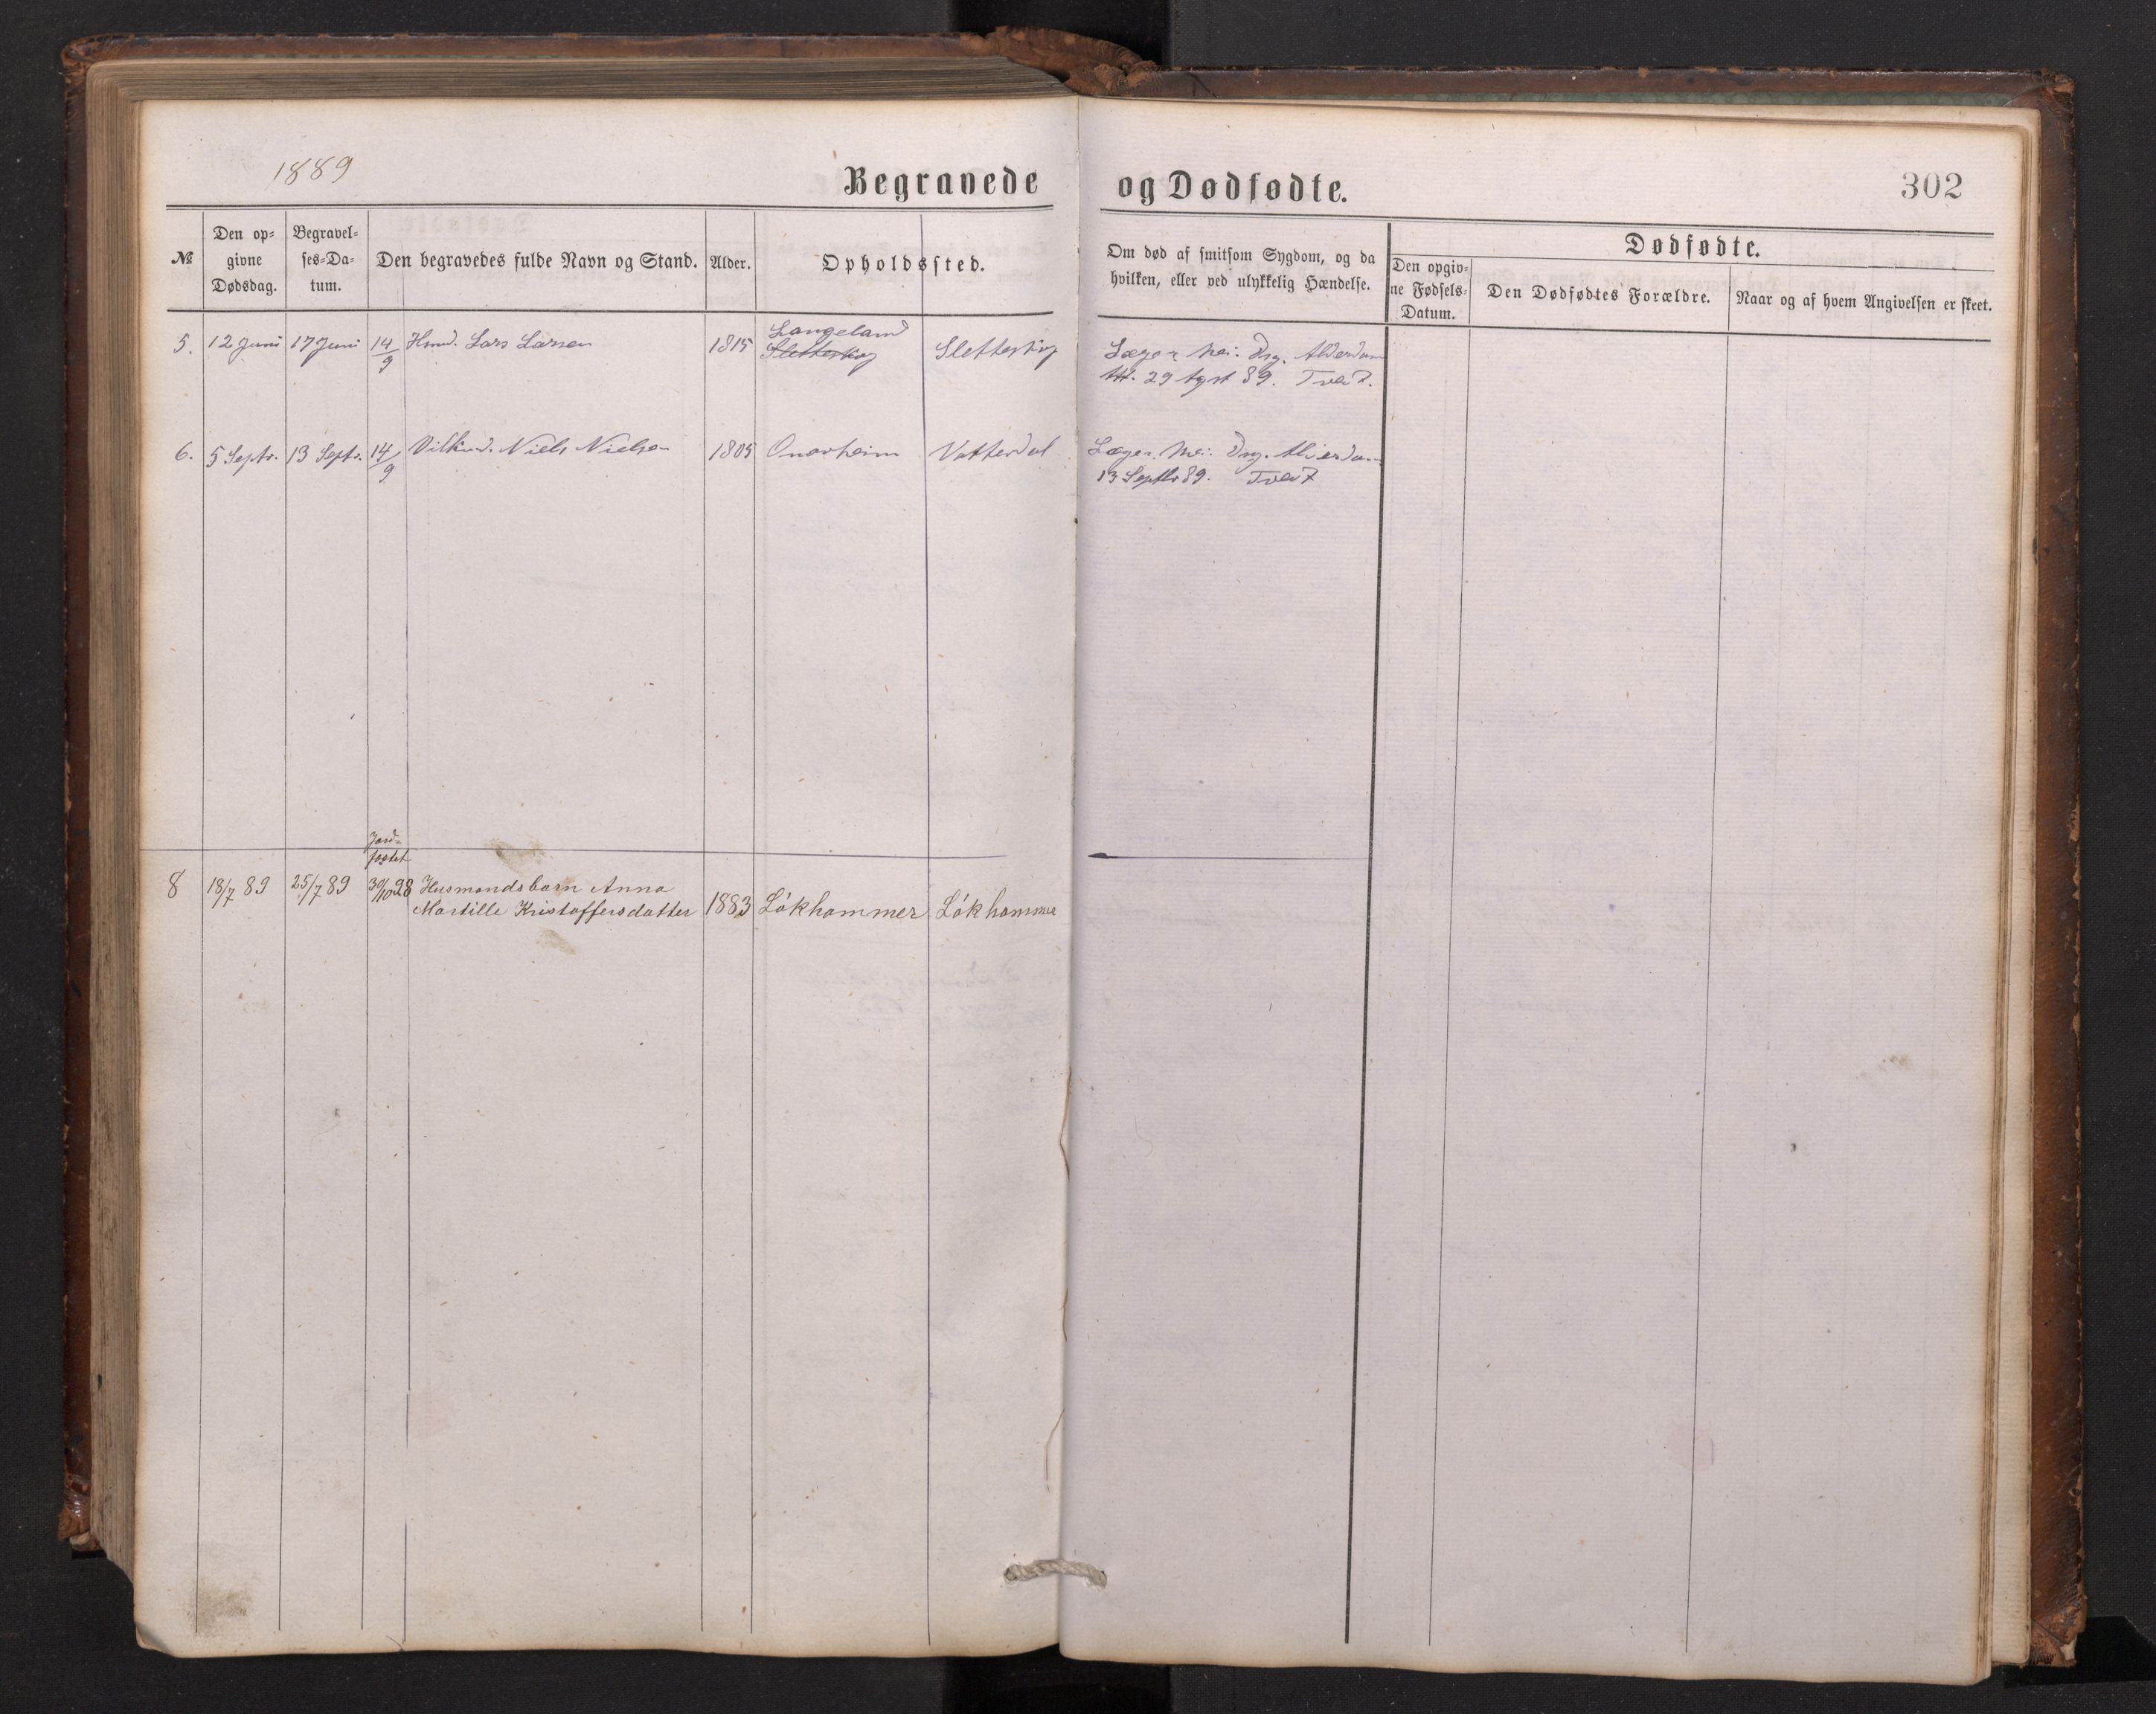 1889
Begravede og Dødfødte.
302
№
Den op-
givne
Dødsdag.
Begravel-
ses-Da-
tum.
Den begravedes fulde Navn og Stand.
Alder.
Opholdssted.
Om død af smitsom Sygdom, og da
hvilken, eller ved ulykkelig Hændelse.
Dødfødte.
Den opgiv-
ne Fødsels-
Datum.
Den Dødfødtes Forældre.
Naar og af hvem Angivelsen er skeet.
5. 12 Juni 17 Juni 14/9 Hmd. Lars Larsen 1815 Langeland Slettestog Slettestog
Læge: Nei. Dsg. Alderdom
Att. 29 Agst 89. Tvedt.
6. 5 Septr. 13 Septr. 14/9 Vilkmd. Niels Nielsen 1805 Onarheim Vatterdal
Læge: Nei. Dsg. Alderdom
13 Septbr 89. Tvedt
Jord-
fæstet
8 18/7 89 25/7 89 30/10 98 Husmandsbarn Anna
Martille Kristoffersdatter 1883 Lókhammer Lókhammer